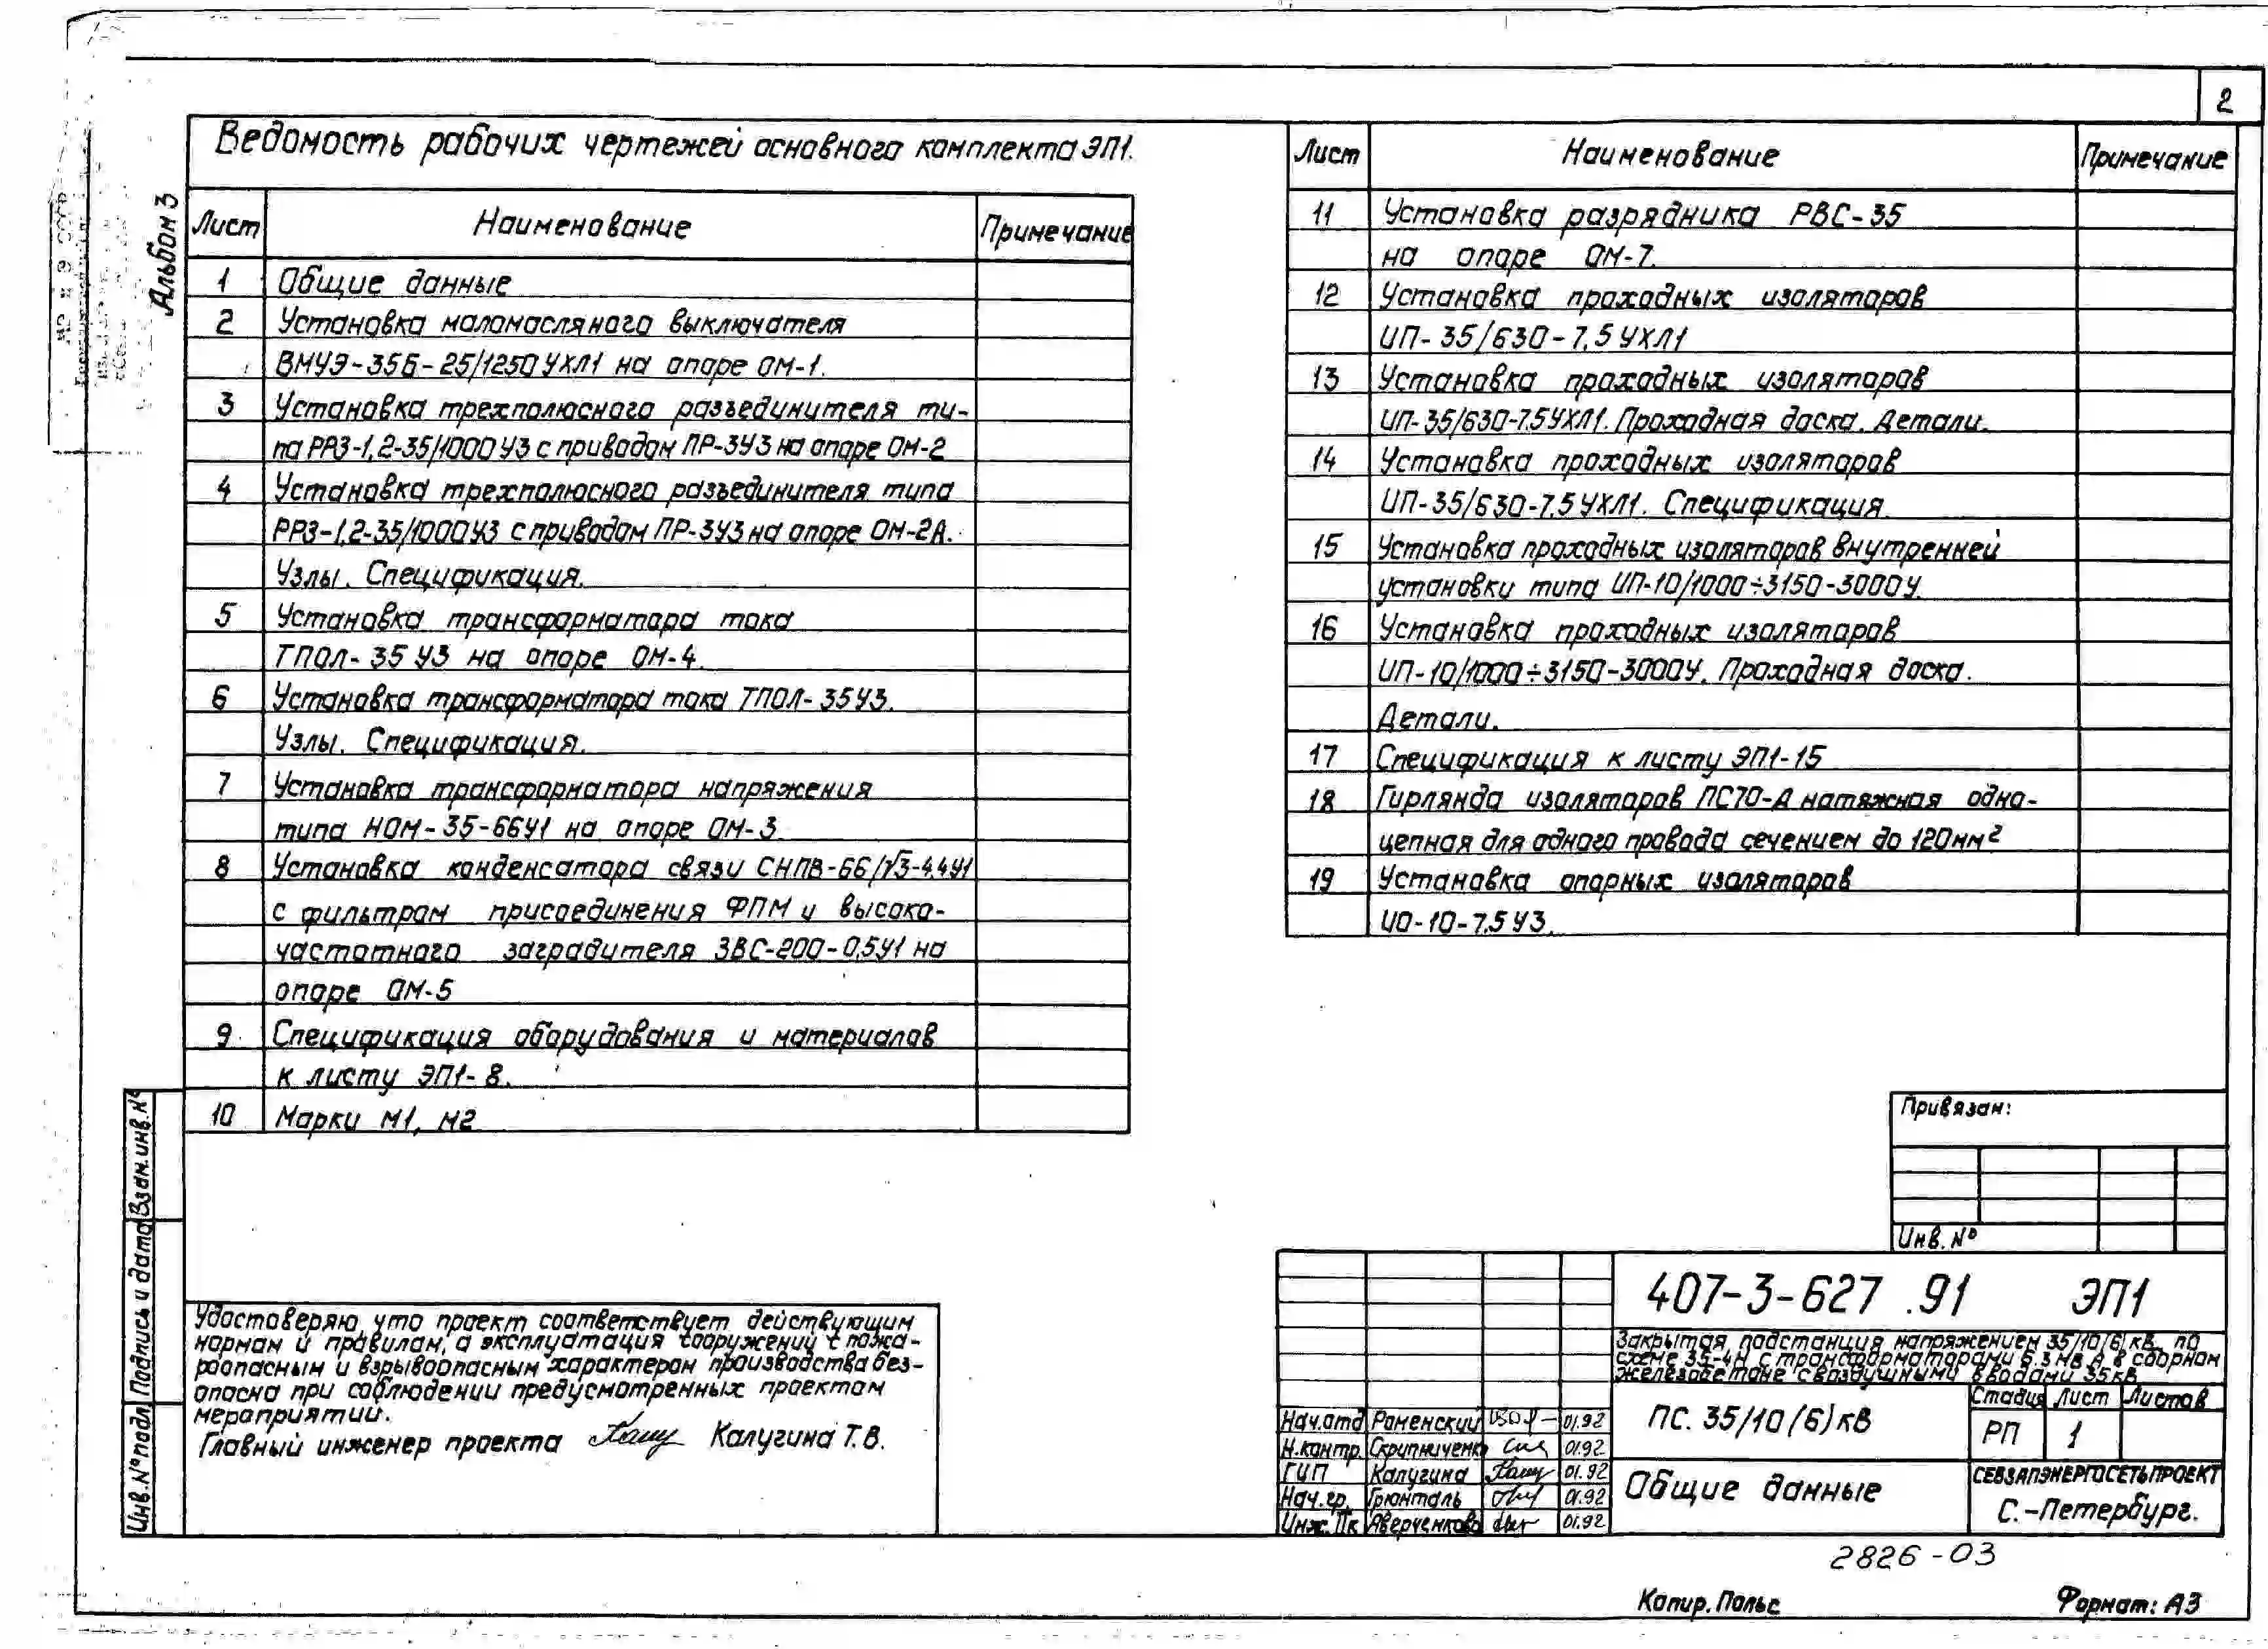 2
Альбом 3
Ведомость рабочих чертежей основного комплекта ЭП1.
Лист Наименование Примечание
1 Общие данные
2 Установка маломасляного выключателя
ВМУЭ-35Б-25/1250 УХЛ1 на опоре ОМ-1.
3 Установка трехполюсного разъединителя ти-
па РРЗ-1,2-35/1000 У3 с приводом ПР-3У3 на опоре ОМ-2
4 Установка трехполюсного разъединителя типа
РРЗ-1,2-35/1000У3 с приводом ПР-3У3 на опоре ОМ-2А.
Узлы. Спецификация.
5 Установка трансформатора тока
ТПОЛ-35 У3 на опоре ОМ-4.
6 Установка трансформатора тока ТПОЛ-35У3.
Узлы. Спецификация.
7 Установка трансформатора напряжения
типа НОМ-35-66У1 на опоре ОМ-3
8 Установка конденсатора связи СНПВ-66/√3-4.4У1
с фильтром присоединения ФПМ и высоко-
частотного заградителя ЗВС-200-0,5У1 на
опоре ОМ-5
9 Спецификация оборудования и материалов
к листу ЭП1-8.
10 Марки М1, М2
Лист Наименование Примечание
11 Установка разрядника РВС-35
на опоре ОМ-7.
12 Установка проходных изоляторов
ИП-35/630-7,5 УХЛ1
13 Установка проходных изоляторов
ИП-35/630-7.5УХЛ1. Проходная доска. Детали.
14 Установка проходных изоляторов
ИП-35/630-7.5 УХЛ1. Спецификация
15 Установка проходных изоляторов внутренней
установки типа ИП-10/1000÷3150-3000У.
16 Установка проходных изоляторов
ИП-10/1000÷3150-3000У. Проходная доска.
Детали.
17 Спецификация к листу ЭП1-15
18 Гирлянда изоляторов ПС70-Д натяжная одно-
цепная для одного провода сечением до 120мм²
19 Установка опорных изоляторов
ИО-10-7.5 У3.
Взам.инв.№
Подпись и дата
Инв.№подл
Удостоверяю, что проект соответствует действующим
нормам и правилам, а эксплуатация сооружений с пожа-
роопасным и взрывоопасным характером производства без-
опасна при соблюдении предусмотренных проектом
мероприятий.
Главный инженер проекта Калугина Т.В.
Привязан:
Инв. №
407-3-627 .91 ЭП1
Закрытая подстанция напряжением 35/10(6) кВ по
схеме 35-4Н с трансформаторами 6.3 МВ А в сборном
железобетоне с воздушными вводами 35 кВ
Нач.отд Роменский 01.92
Н.контр. Скрипниченко 01.92
ГИП Калугина 01.92
Нач.гр. Грюнталь 01.92
Инж. IIк Аверченкова 01.92
ПС. 35/10 (6) кВ
Стадия Лист Листов
РП 1
Общие данные
СЕВЗАПЭНЕРГОСЕТЬПРОЕКТ
С.-Петербург.
2826-03
Копир. Польс
Формат: А3